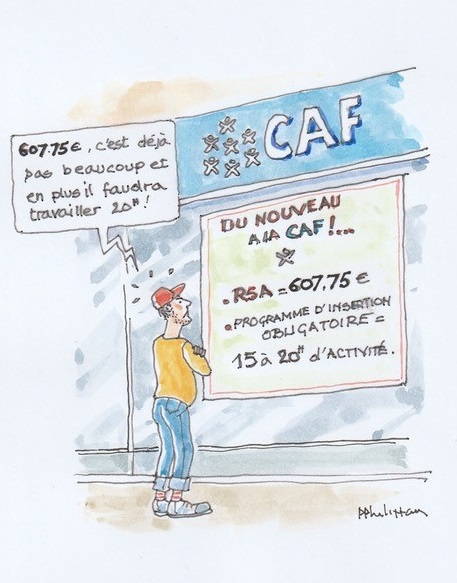 607.75€, c'est déjà
pas beaucoup et
en plus il faudra
travailler 20H !
CAF
DU NOUVEAU
A LA CAF !...
. RSA = 607,75 €
. PROGRAMME D'INSERTION
OBLIGATOIRE =
15 à 20H d'ACTIVITÉ.